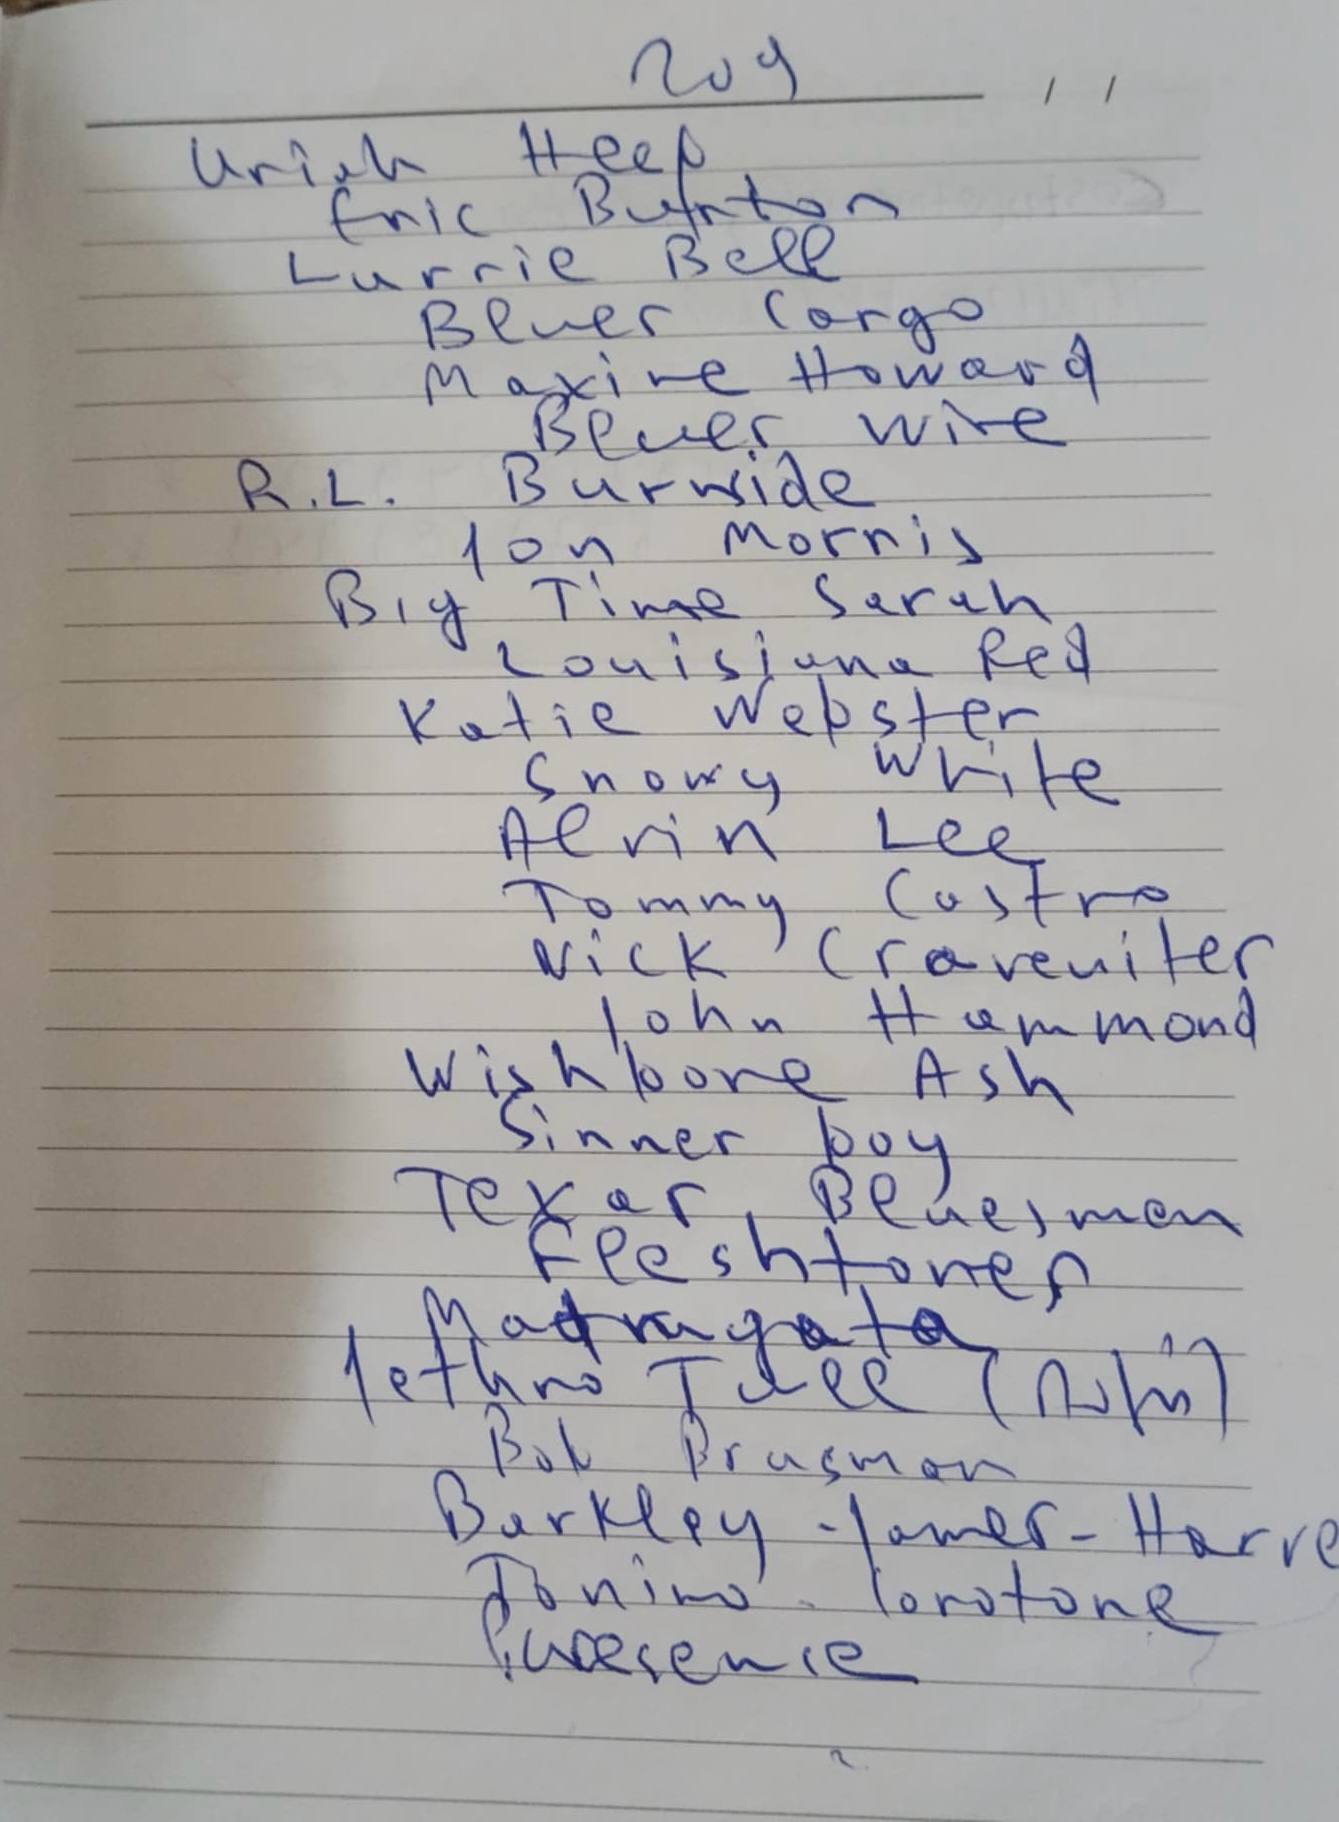 Uriah Heep
Eric Burton
Lurrie Bell
Blues Cargo
Maxine Howard
Blues Wire
R.L. Burnside
Jon Morris
Big Time Sarah
Louisiana Red
Katie Webster
Snowy White
Alvin Lee
Tommy Castro
Nick Graveniter
John Hammond
Wishbone Ash
Sinner boy
Texas Bluesmen
Fleshtones
Madrugata
Jethro Tull
Bob Brusman
Barkley - James - Harve
Tonino Carotone